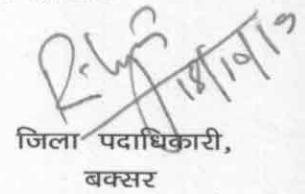 18/10/19
जिला पदाधिकारी,
बक्सर